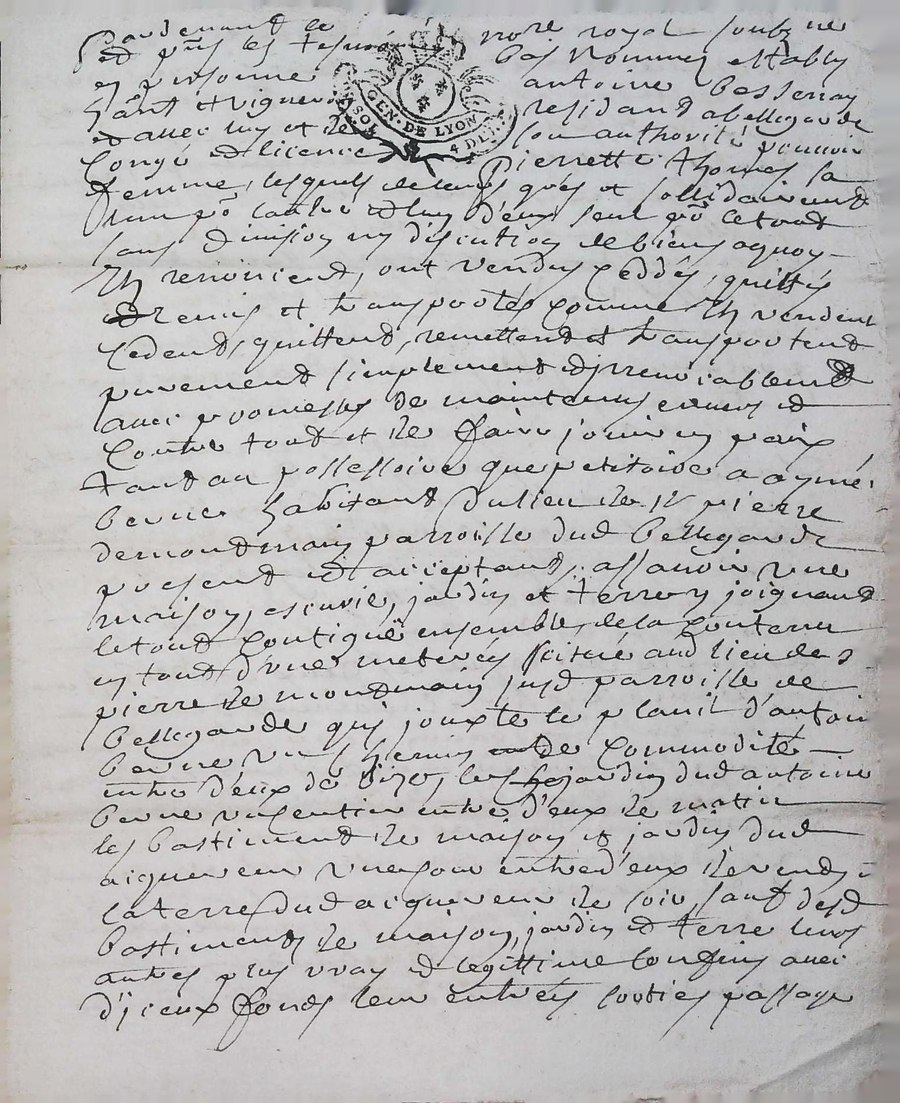 Pardevant le nore royal soubzne
et pnts les tesmoins bas nommes estably
en personne antoine besseney
hant et vigneron residant a bellegarde
et avec luy et de son authorité pouvoir
GEN. DE LYON 4 DEN.
Congé et licence Pierrette thomas sa
femme, lesquels de leurs grés et sollidairement
l'un po l'autre et l'un d'eux seul po le tout
sans division ny discution de biens aquoy
Ils renoncent, ont vendus ceddés, quittés
remis et transportes comme Ils vendent
Cedent, quittent, remettent et transportent
purement simplement et irrevocablement
avec promesses de maintenir envers et
Contre tout et de faire jouir en paix
tant au possessoire que petitoire a aymé
berne habitant du lieu de st pierre
demontmain parroisse dud bellegarde
present et acceptant, assavoir une
maison, escurie, jardin et terre y joignant
le tout Contigue ensemble, de la Contenue
en tout d'une meterée scitué aud lieu de st
pierre de montmain susd parroisse de
bellegarde qui jouxte le d'antoine
berne un chemin de Commodité
entre d'eux de bize, les jardin dud antoine
berne un sentier entre d'eux de matin
les bastiment de maison et jardin dud
aiquereur une cour entre d'eux de vend
la terre dud acquereur de soir, sauf desd
bastiments de maison, jardin et terre leurs
autres plus vray et legittime Confins avec
d'iceux fonds leur entrées sorties passage